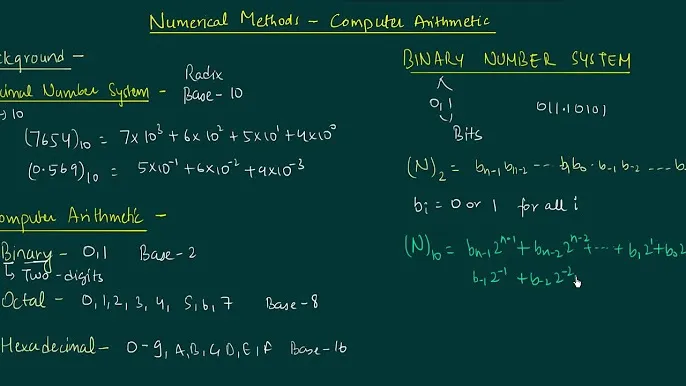 Numerical Methods - Computer Arithmetic
ckground -
cimal Number System - Radix Base - 10
→ 10
(7654)₁₀ = 7x10³ + 6x10² + 5x10¹ + 4x10⁰
(0.569)₁₀ = 5x10⁻¹ + 6x10⁻² + 9x10⁻³
omputer Arithmetic -
Binary - 0,1 Base - 2
↳ Two-digits
Octal - 0,1,2,3,4,5,6,7 Base - 8
Hexadecimal - 0-9, A,B,C,D,E,F Base - 16
BINARY NUMBER SYSTEM
0,1 011.10101
Bits
(N)₂ = bₙ₋₁ bₙ₋₂ --- b₁b₀ . b₋₁ b₋₂ ....
bᵢ = 0 or 1 for all i
(N)₁₀ = bₙ₋₁2ⁿ⁻¹ + bₙ₋₂2ⁿ⁻² + ... + b₁2¹ + b₀2
b₋₁2⁻¹ + b₋₂2⁻²